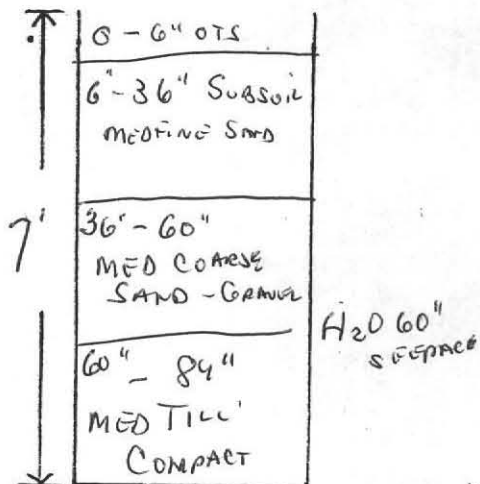 0 - 6" OTS
6" - 36" SUBSOIL
MEDFINE SAND
7'
36" - 60"
MED COARSE
SAND - GRAVEL
H2O 60"
SEEPAGE
60" - 84"
MED TILL
COMPACT